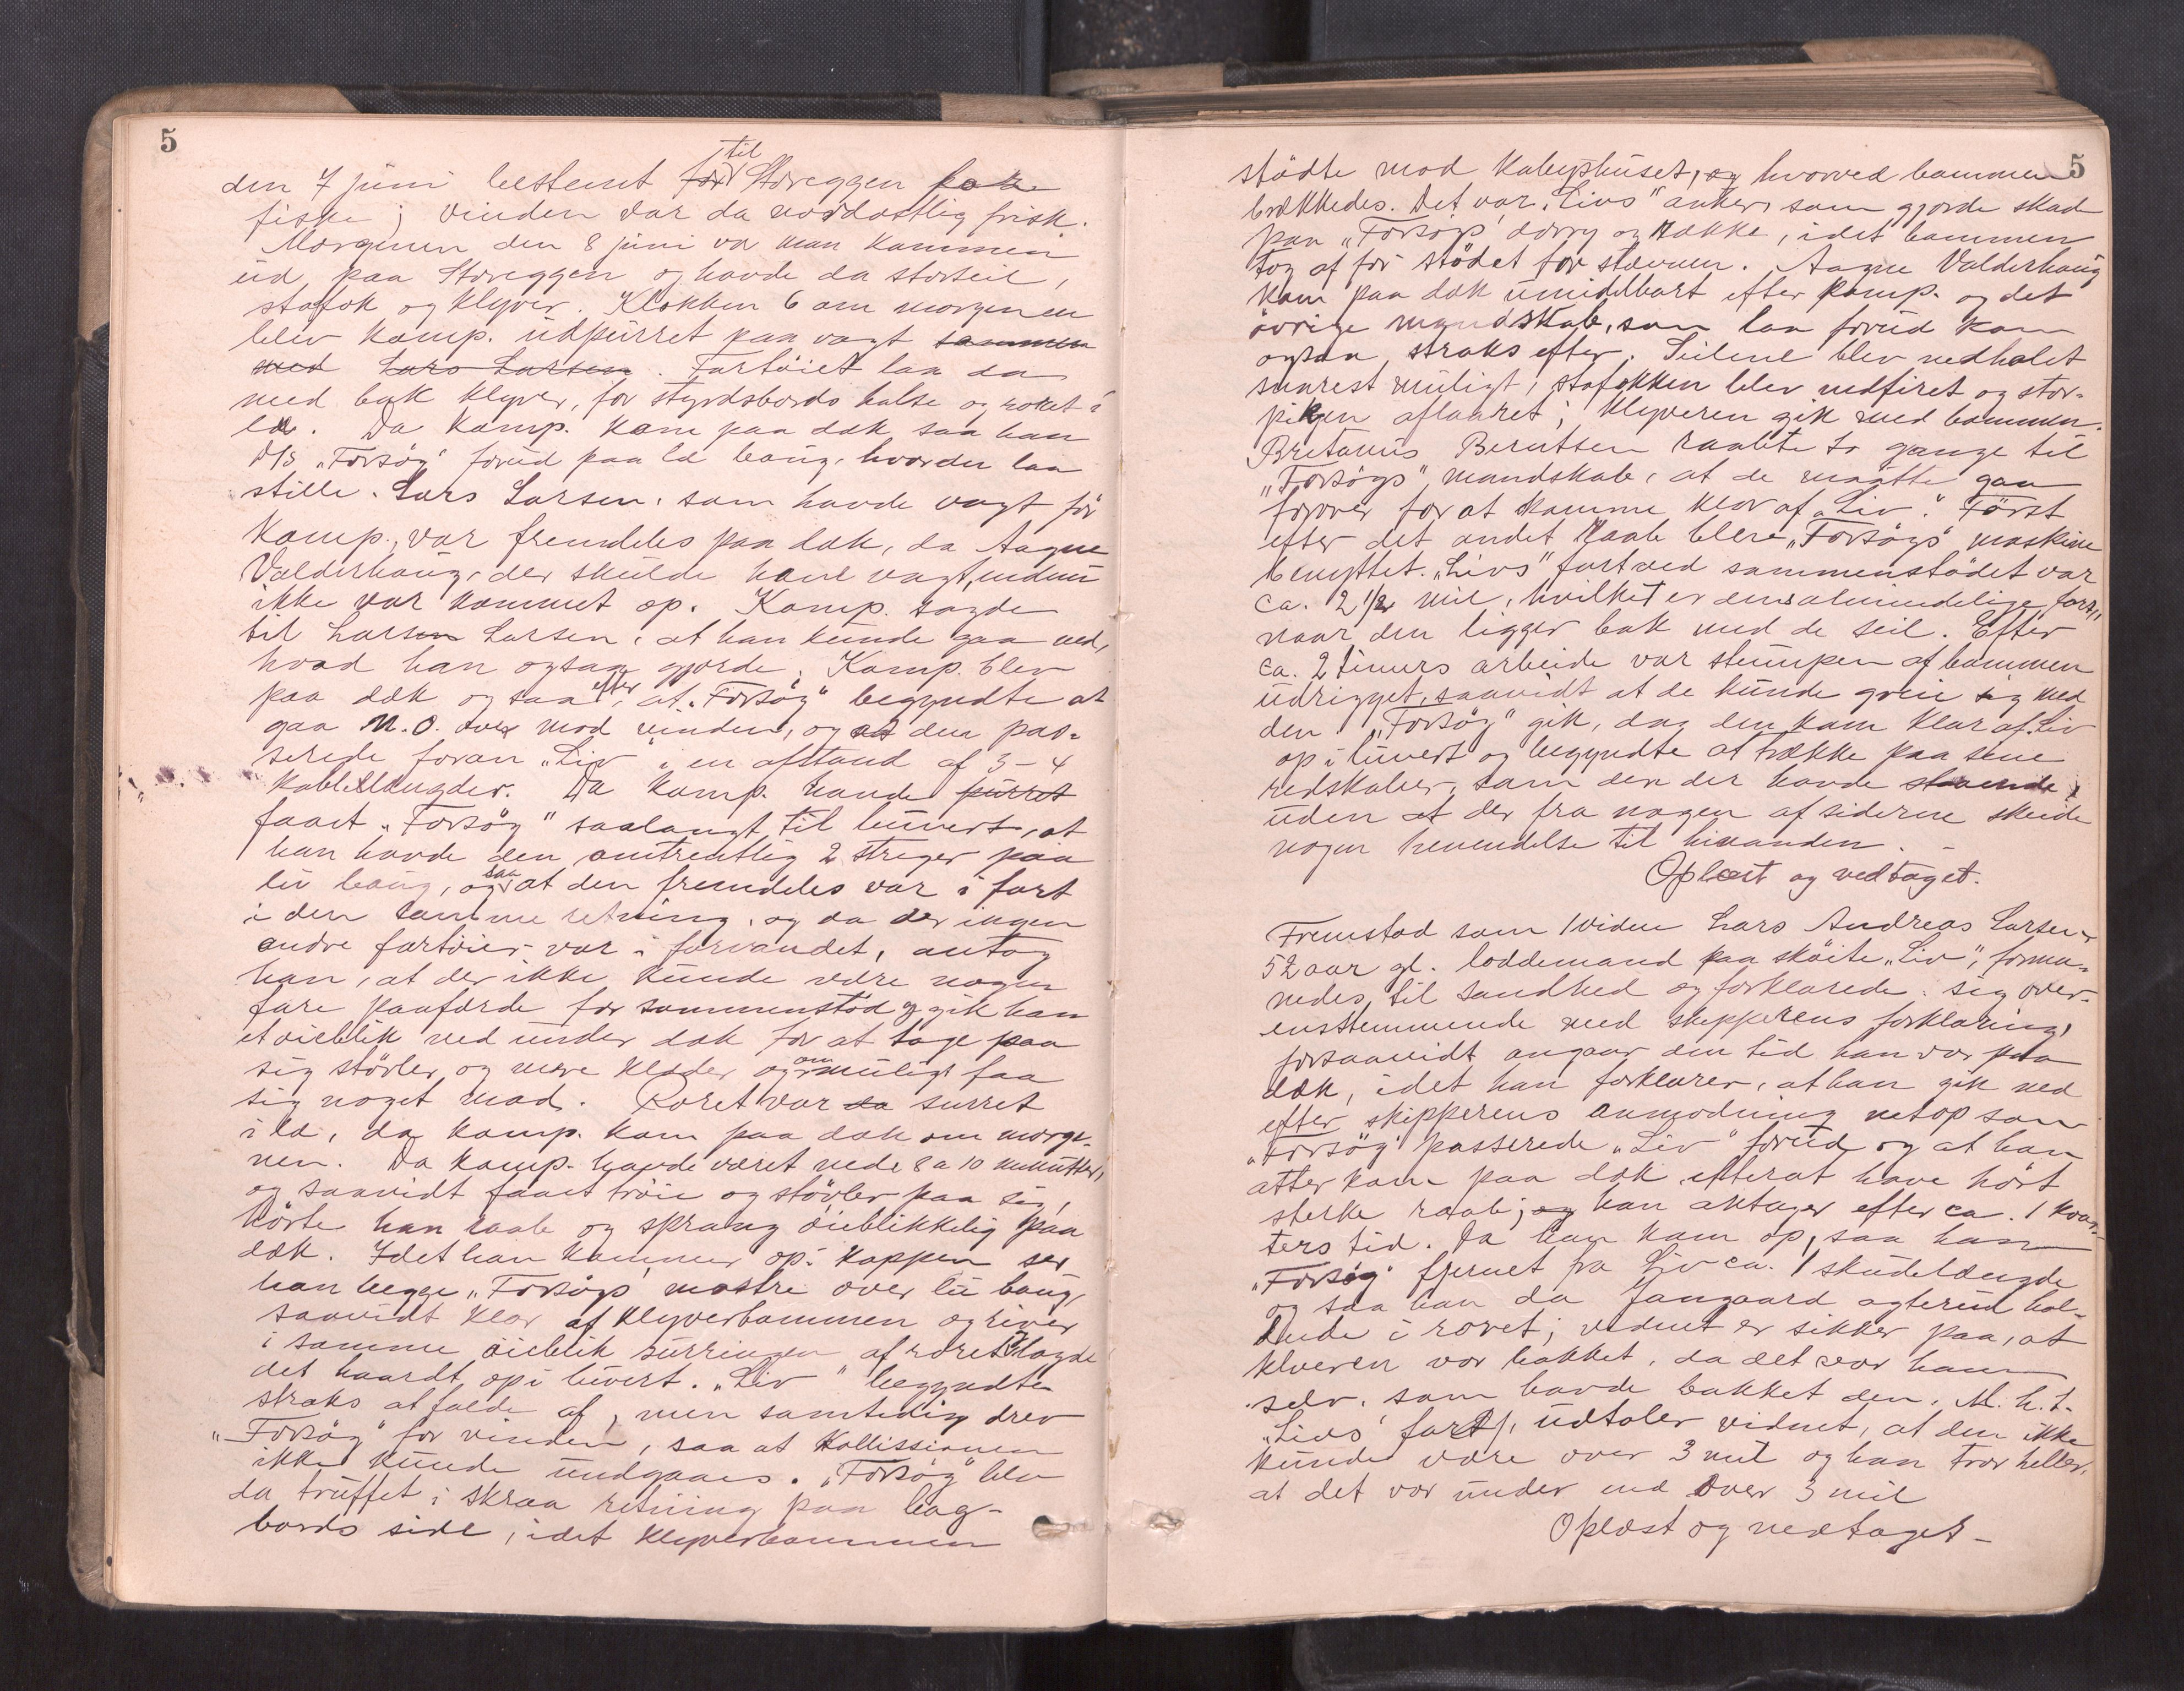 5
den 7 juni bestemt for til Storeggen paa
fiske; vinden var da nordostlig frisk.
Morgenen den 8 juni va man kommen
ud paa Storeggen og havde da storseil,
stafok og klyver. Klokken 6 om morgenen
blev komp. udpurret paa vagt sammen
med Lars Larsen. Fartöiet laa da
med bak klyver, for styrdsbords halse og roret i
læ. Da komp. kom paa dæk saa han
D/S "Forsög" forud paa læ baug, hvor den laa
stille. Lars Larsen, som havde vagt för
Komp., var fremdeles paa dæk, da Aagne
Valderhaug, der skulde have vagt, endnu
ikke var kommet op. Komp. sagde
til Larsen Larsen, at han kunde gaa ned,
hvad han ogsaa gjorde. Komp. blev
paa dæk og saa efter, at "Forsög" begyndte at
gaa N.O. over mod vinden, og at den pas-
serede foran "Liv" i en afstand af 3-4
kabellængder. Da komp. havde purret
faaet "Forsög" saalangt til luvert, at
han havde den omtrentlig 2 streger paa
luv baug, og saa at den fremdeles var i fart
i den samme retning, og da der ingen
andre fartöier var i farvandet, antog
han, at der ikke kunde være nogen
fare paafærde for sammenstöd og gik han
et öieblik ned under dæk for at tage paa
sig stövler og mere klæder og om muligt faa
sig noget mad. Roret var da surret
i læ, da komp. kom paa dæk om morge-
nen. Da komp. havde været nede 8 a 10 minutter,
og saavidt faaet tröie og stövler paa sig,
hörte han raab og sprang öieblikkelig paa
dæk. Idet han kommer op i kappen ser
han begge "Forsögs" mastre over luv baug,
saavidt klar af klyverbommen og river
i samme öieblik surringen af roret og lagde
det haardt op i luvert. "Liv" begyndte
straks at falde af, men samtidig drev
"Forsög" for vinden, saa at kollissionen
ikke kunde undgaaes. "Forsög" blev
da truffet i skraa retning paa bag-
bords side, idet klyverbommen
5
stödte mod kabyshuset, og hvorved bommen
brækkedes. Det var "Livs" anker, som gjorde skade
paa "Forsögs" dorry og række, idet bommen
tog af for stödet for stævnen. Aagne Valderhaug
kom paa dæk umidelbart efter komp. og det
övrige mandskab, som laa forud kom
ogsaa straks efter. Seilene blev nedhalet
snarest muligt, stafokken blev nedfiret og stor-
piken aflaaret; klyveren gik med bommen.
Bretanus Berntsen raabte to gange til
"Forsögs" mandskab, at de maatte gaa
forover for at komme klar af "Liv". Först
efter det andet raab blev "Forsögs" maskine
benyttet. "Livs" fart ved sammenstödet var
ca. 2 1/2 mil, hvilket er dens almindelige fart,
naar den ligger bak med de seil. Efter
ca. 2 timers arbeide var stumpen af bommen
udrigget, saavidt at de kunde greie sig med
den. "Forsög" gik, dag den kom klar af Liv
op i luvert og begyndte at trække paa sine
redskaber, som den der havde staaende,
uden at der fra nogen af siderne skeede
nogen henvendelse til hinanden. -
Oplæst og vedtaget.
Fremstod som 1 vidne Lars Andreas Larsen,
52 aar gl. loddemand paa sköite "Liv", forma-
nedes til sandhed og forklarede: sig over-
ensstemmende med skipperens forklaring,
forsaavidt angaar den tid han var paa
dæk, idet han forklarer, at han gik ned
efter skipperens anmodning netop som
"Forsög" passerede "Liv" forud og at han
atter kom paa dæk efterat have hört
sterke raab; og han antager efter ca. 1 kvar-
ters tid. Da han kom op, saa han
"Forsög" fjernet fra Liv ca. 1 skudelængde
og saa han da Jangaard agterud hol-
dende i roret; vidnet er sikker paa, at
klveren var bakket, da det var ham
selv, som havde bakket den. M. h. t.
"Livs" fart, udtaler vidnet, at den ikke
kunde være over 3 mil og han tror heller,
at det var under end over 3 mil
Oplæst og vedtaget -